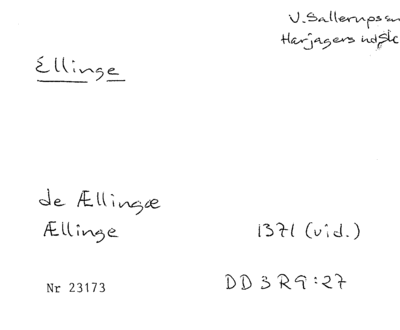 V. Sallerups sn
Harjagers hd Sk
Ellinge
de Ællingæ
Ællinge 1371 (vid.)
Nr 23173 DD 3 R 9:27